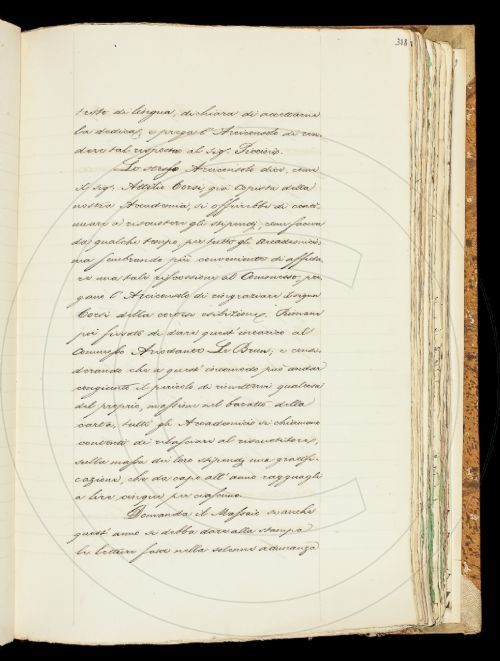 318
testo di lingua, dichiara di accettarne
la dedica, e prega l'Arciconsolo di ren-
dere tal risposta al Sig.r
Lo stesso Arciconsolo dice, come
il Sig. Attilio Corsi, già Copista della
nostra Accademia, si offrirebbe di conti-
nuare a riscuotere gli stipendj, come faceva
da qualche tempo, per tutti gli Accademici:
ma sembrando più conveniente di affida-
re una tale riscossione al Commesso, pre-
gano l'Arciconsolo di ringraziare il Signor
Corsi della cortese esibizione. Rimane
poi fissato di dare quest'incarico al
Commesso Ariodante Le Brun; e consi-
derando che a quest'incomodo può andar
congiunto il pericolo di rimettervi qualcosa
del proprio, massime nel baratto della
carta, tutti gli Accademici si chiamano
contenti di rilasciare al riscuotitore,
sulla massa dei loro stipendj una gratifi-
cazione, che da capo all'anno ragguagli
a lire cinque per ciascuno.
Domanda il Massaio se anche
quest'anno si debba dare alla stampa
le letture fatte nella solenne adunanza